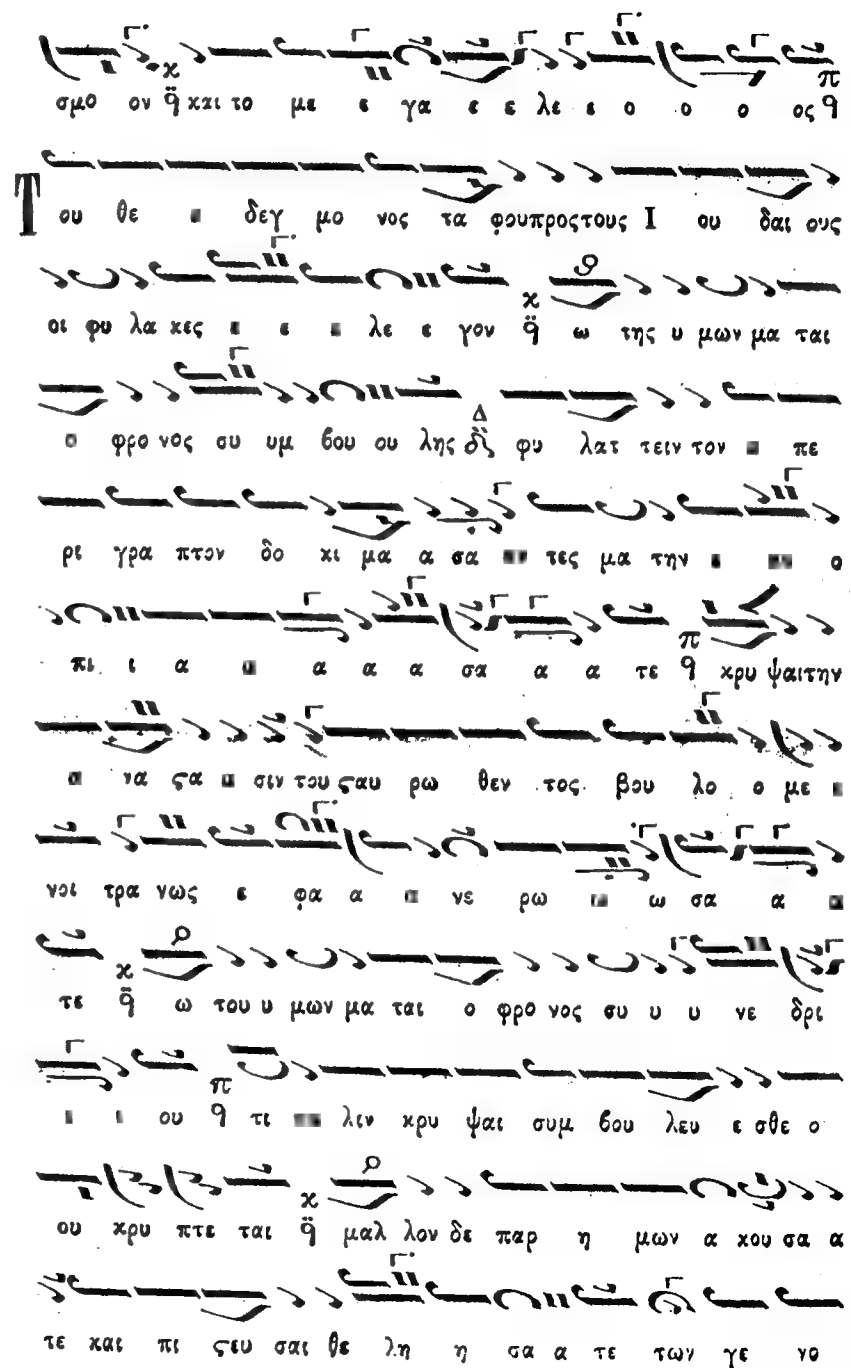 σμο ον και το με ε γα ε ε λε ε ο ο ο ος
Του θε δεγ μο νος τα φου προς τους Ι ου δαι ους
οι φυ λα κες ε ε ε λε ε γον ω της υ μων μα ται
ο φρο νος συ υμ βου ου λης φυ λατ τειν τον α πε
ρι γρα πτον δο κι μα α σα τες μα την ο
πι ι α α α α σα α α τε κρυ ψαι την
α να ϛα α σιν του ϛαυ ρω θεν τος βου λο ο με
νοι τρα νως ε φα α α νε ρω ω σα α α
τε ω του υ μων μα ται ο φρο νος συ υ υ νε δρι
ι ι ου τι λιν κρυ ψαι συμ βου λευ ε σθε ο
ου κρυ πτε ται μαλ λον δε παρ η μων α κου σα α
τε και πι ϛευ σαι θε λη η σα α τε των γε νο